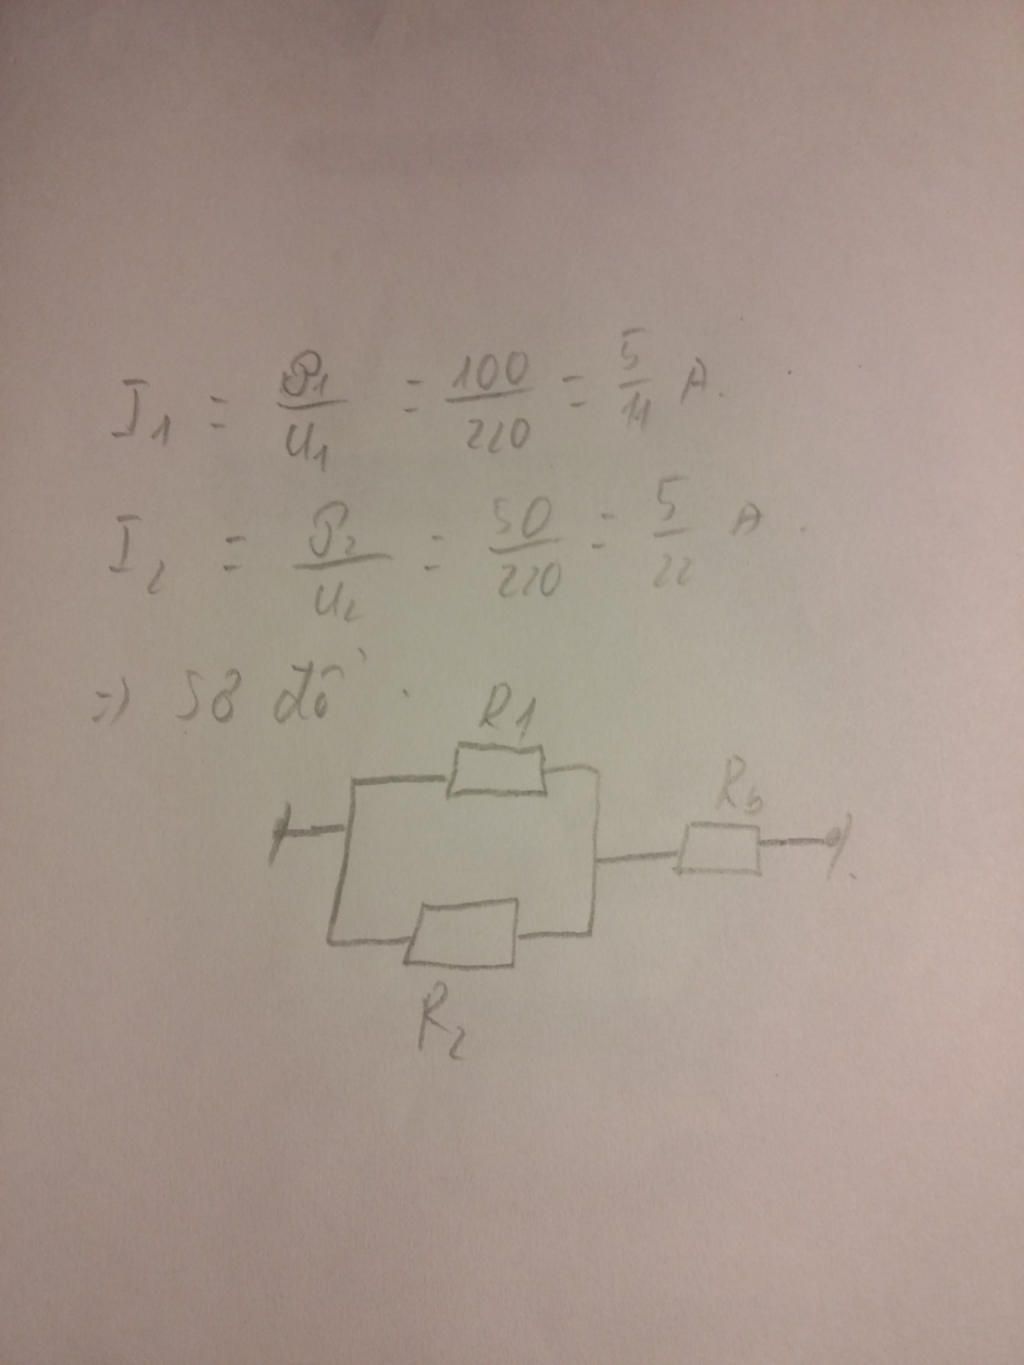 I₁ = P₁/U₁ = 100/220 = 5/11 A.
I₂ = P₂/U₂ = 50/220 = 5/22 A.
=) Sơ đồ.
R1
Rb
R₂